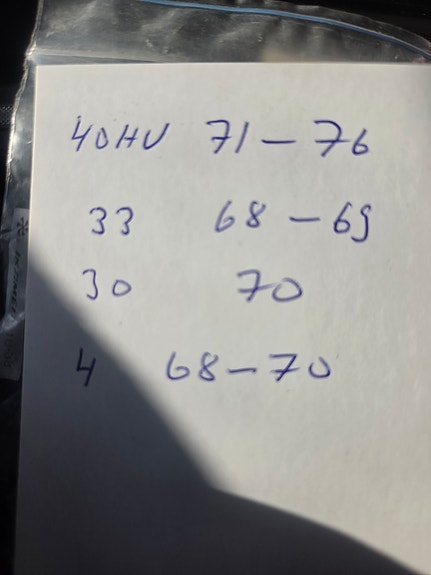 40HU 71 - 76
33 68 - 69
30 70
4 68 - 70